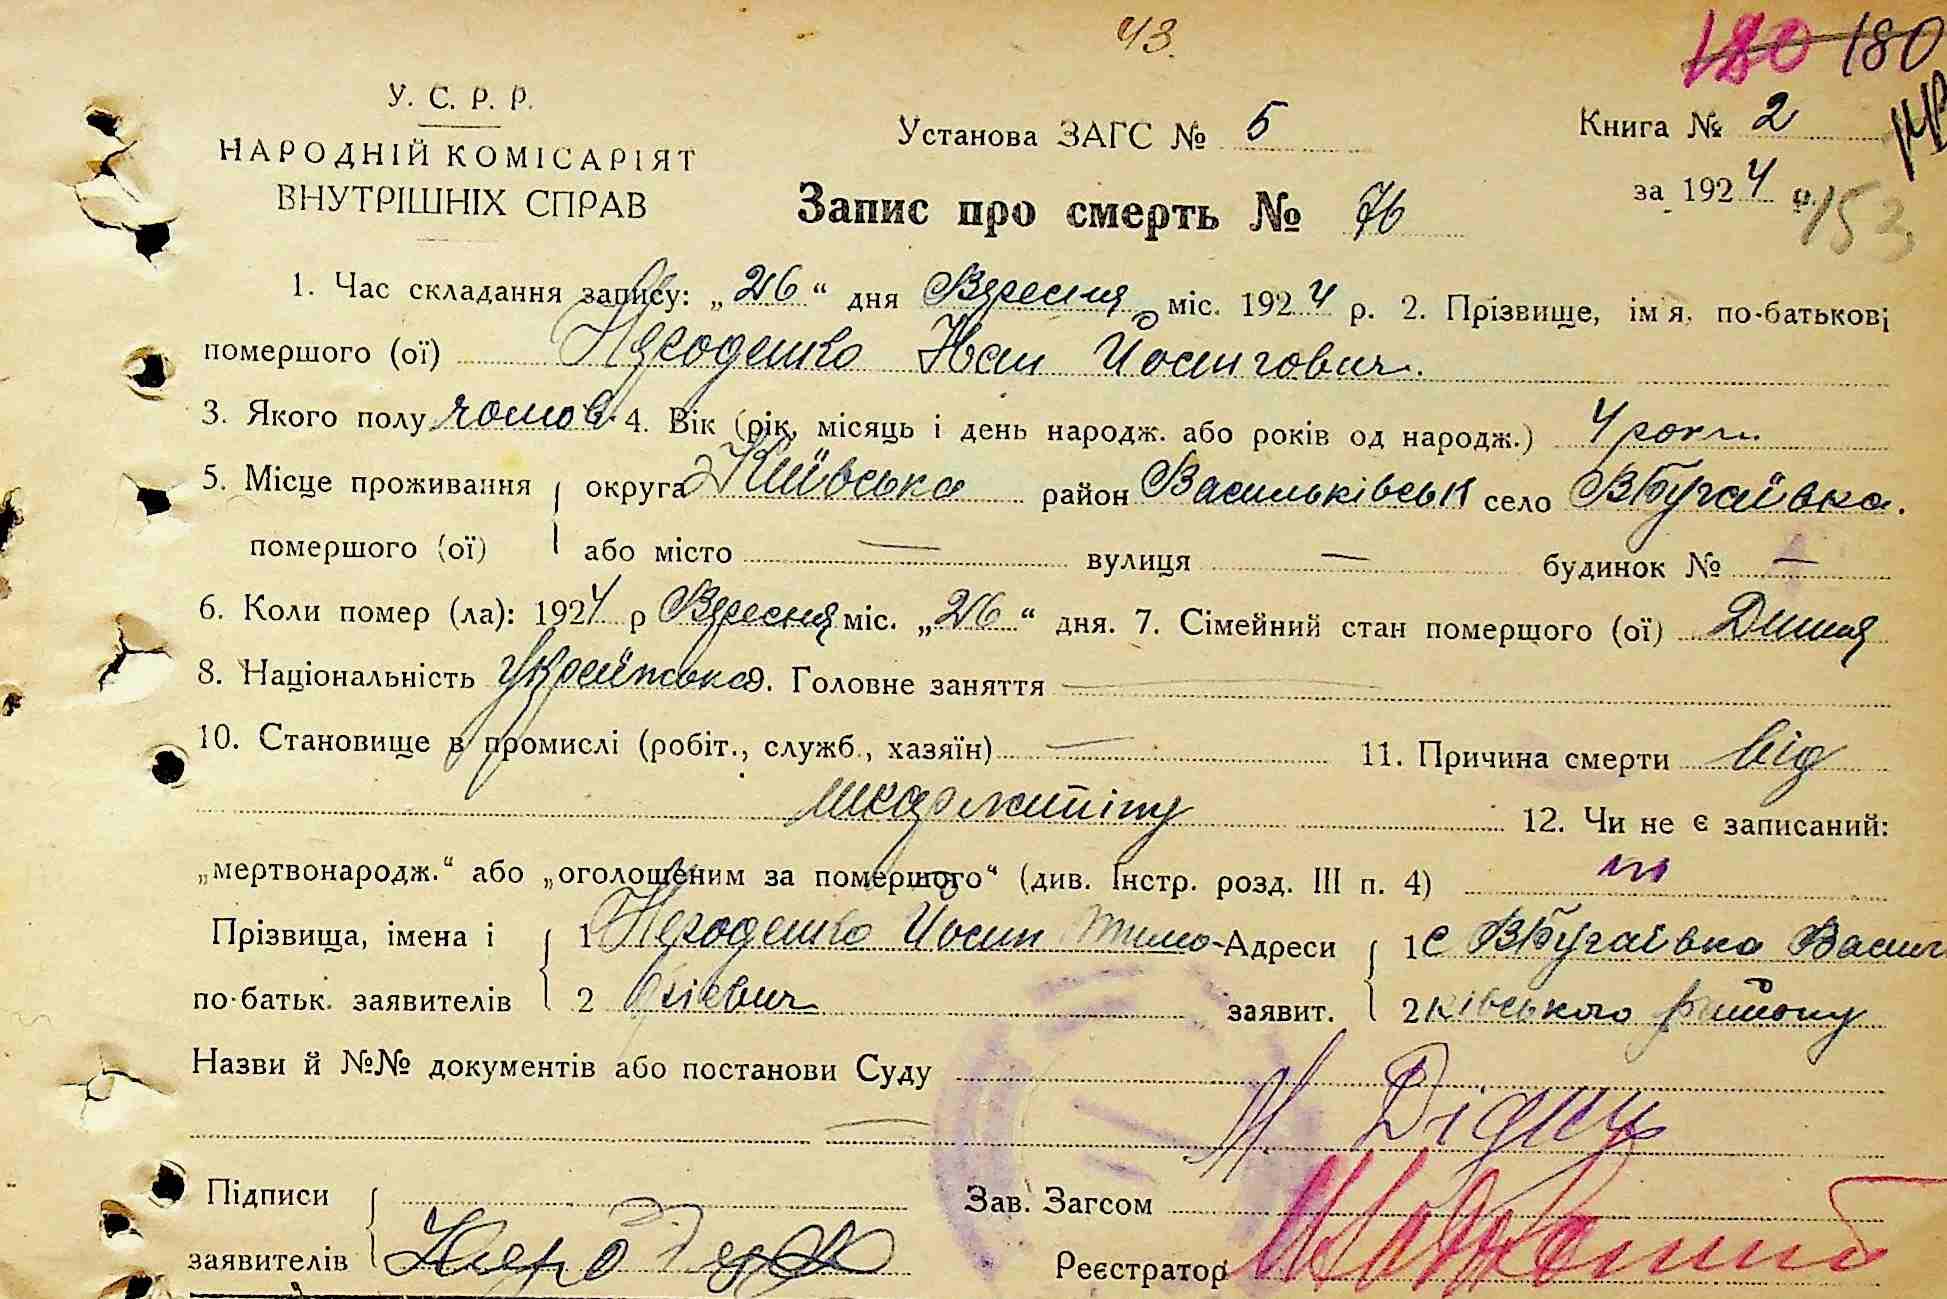 43.
180 180
У. С. Р. Р.
НАРОДНІЙ КОМІСАРІЯТ
ВНУТРІШНІХ СПРАВ
Установа ЗАГС № 5
Книга № 2
за 1924 р.
153
Запис про смерть № 76
1. Час складання запису: „26“ дня Вересня міс. 1924 р. 2. Прізвище, імя, по-батькові
помершого (ої) Нероденко Іван Йосипович.
3. Якого полу чолов. 4. Вік (рік, місяць і день народж. або років од народж.) 4 роки.
5. Місце проживання округа Київська район Васильківськ село ВБугаївка.
помершого (ої) або місто — вулиця — будинок № —
6. Коли помер (ла): 1924 р Вересня міс. „26“ дня. 7. Сімейний стан помершого (ої) Дитя
8. Національність Українська 9. Головне заняття —
10. Становище в промислі (робіт., служб., хазяїн) — 11. Причина смерти від
шкарлятіни 12. Чи не є записаний:
„мертвонародж.“ або „оголошеним за помершого“ (див. Інстр. розд. III п. 4) ні
Прізвища, імена і 1 Нероденко Йосип Тимо- Адреси 1 с ВБугаївка Василь
по-батьк. заявителів 2 фієвич заявит. 2 ківського району
Назви й №№ документів або постанови Суду
—
Підписи
Зав. Загсом
заявителів
Реєстратор